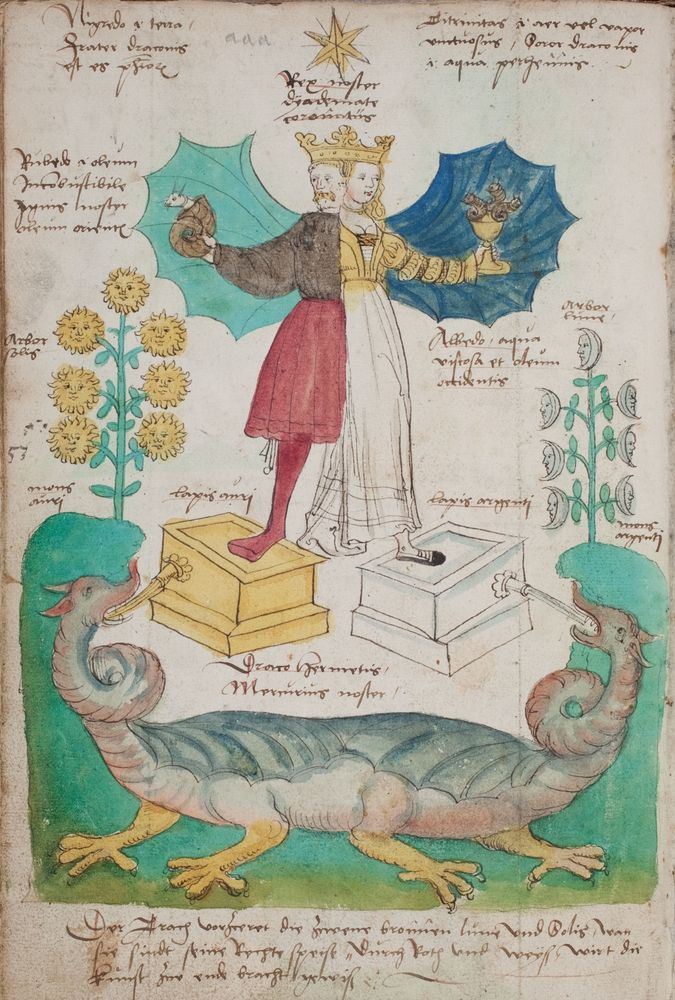 Nigredo i terra
frater draconis
est es
aaa
Citrinitas i aer vel vapor
vnctuosus, Soror draconis
i aqua
Rex noster
dyademate
coronatus
Rubedo i oleum
Incombustibile
Ignis noster
oleum orientis
Albedo, aqua
viscosa et oleum
occidentis
arbor
lune
Arbor
solis
53
mons
auri
lapis auri
lapis argenti
mons
argenti
Draco Hermetis
Mercurius noster
Der Trach vorzeret die zwene Lune vnd Solis, wan
sie sindt seine Rechte speise, durch Roth vnd weys, wirt die
kunst zw ende bracht gewis